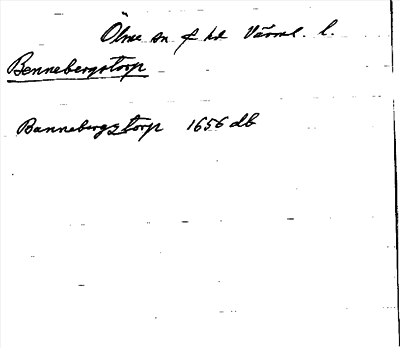 Ölme sn f hd Värml. l.
Bennebergstorp
Bannebergztorp 1656 db